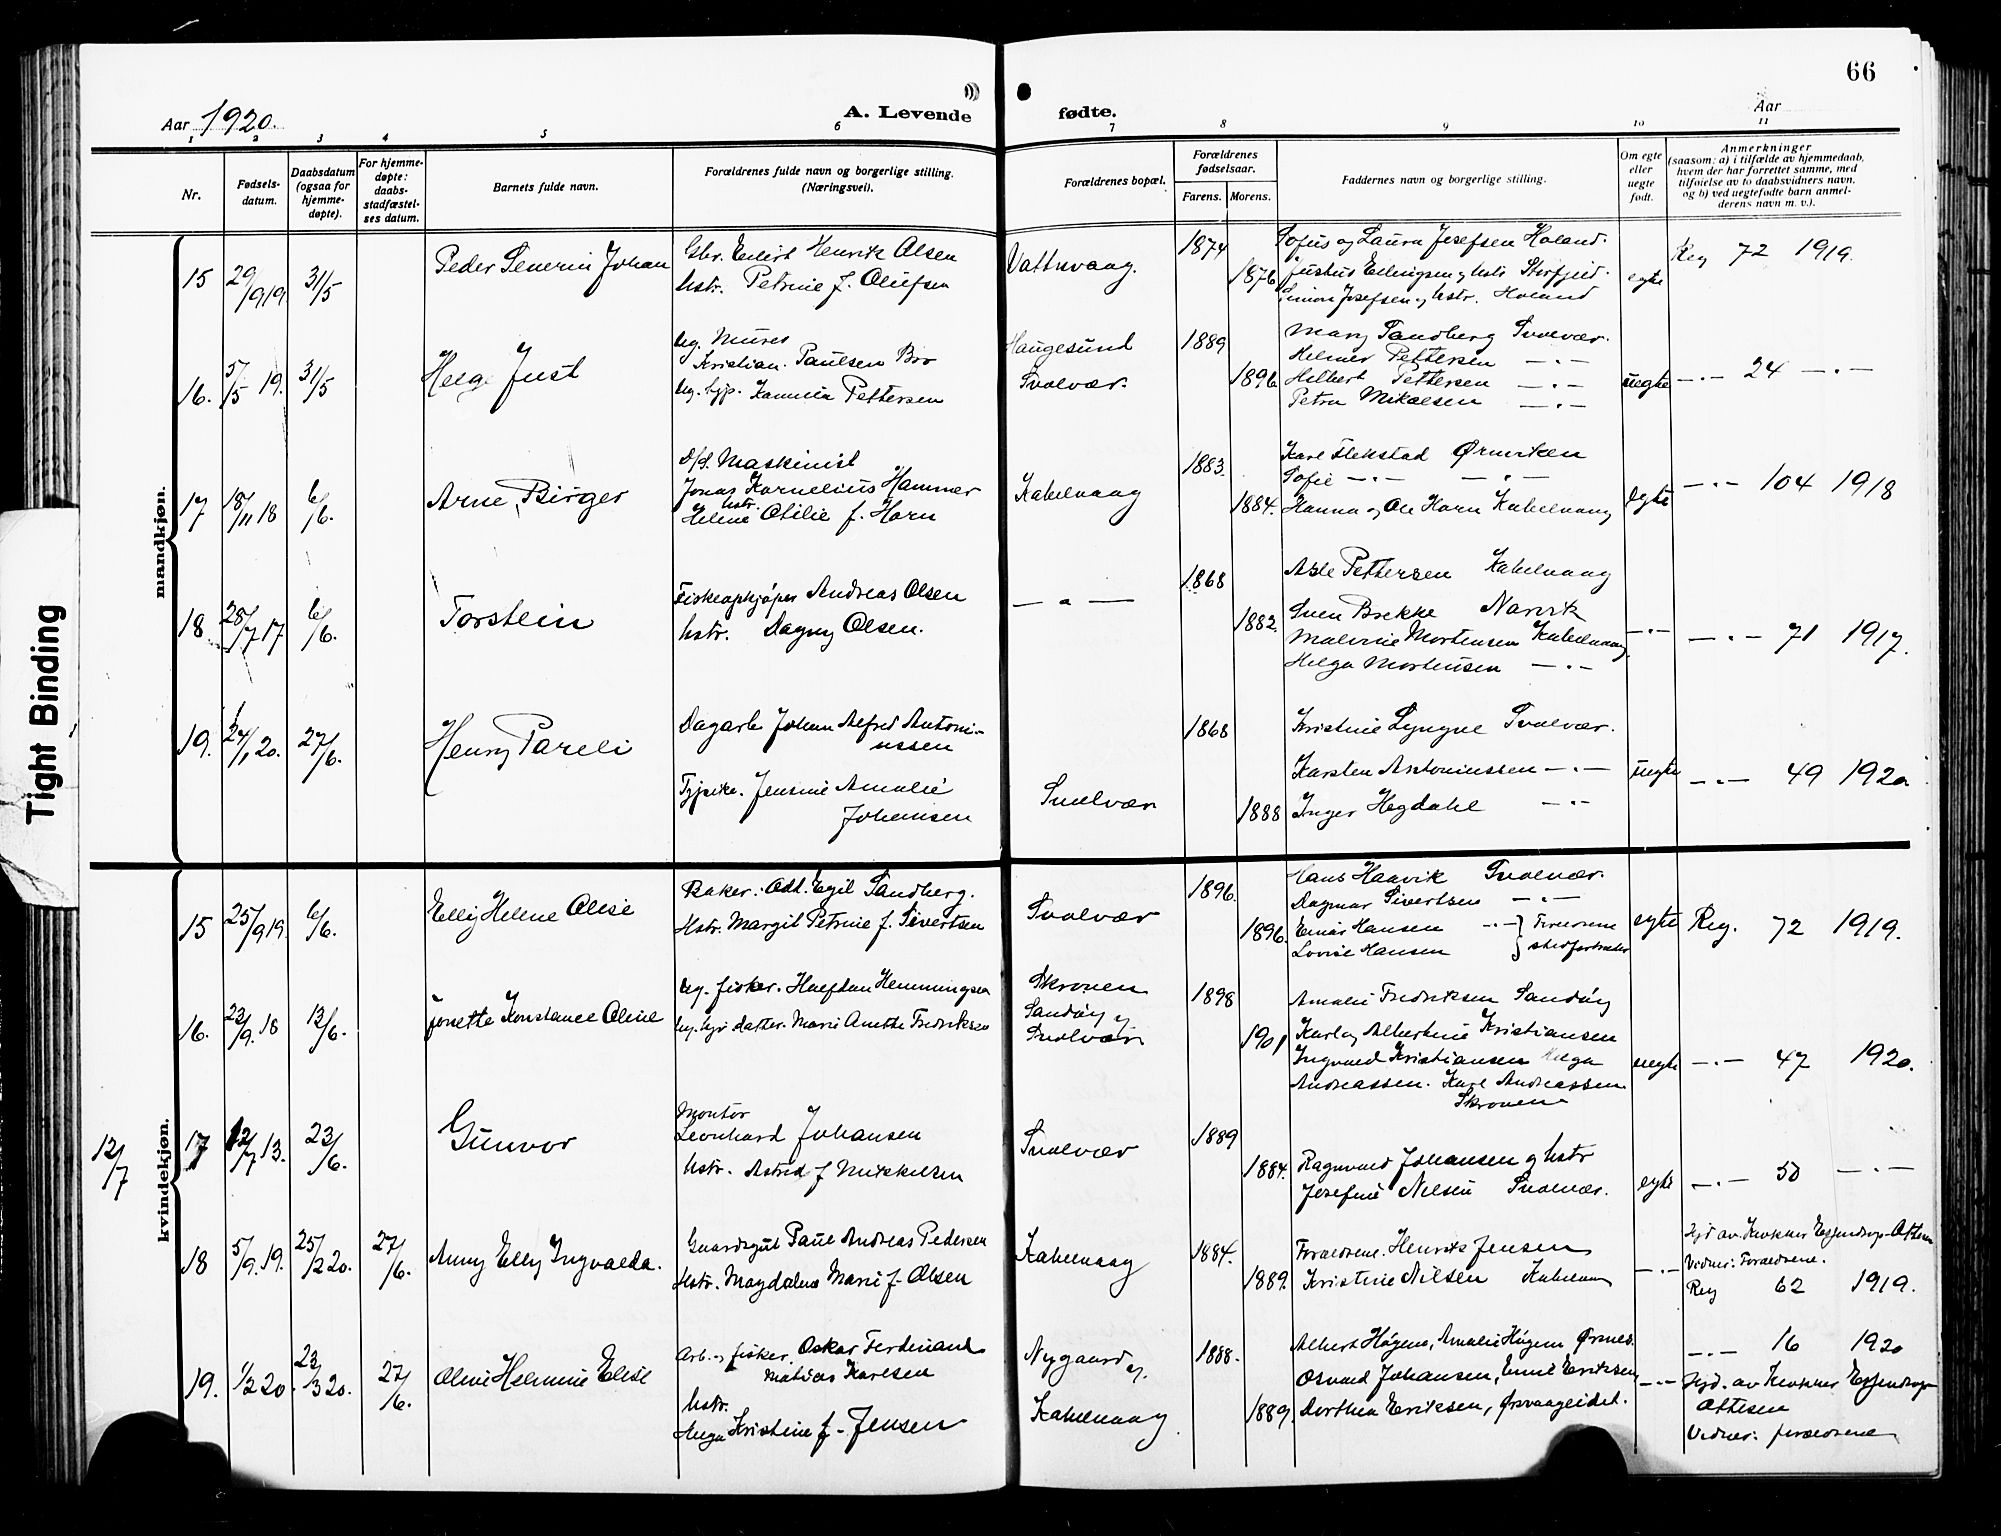 66
Aar 1920.
A. Levende fødte.
Aar
1 2 3 4 5 6 7 8 9 10 11
Nr.
Fødsels-
datum.
Daabsdatum
(ogsaa for
hjemme-
døpte).
For hjemme-
døpte:
daabs-
stadfæstel-
ses datum.
Barnets fulde navn.
Forældrenes fulde navn og borgerlige stilling.
(Næringsvei).
Forældrenes bopæl.
Forældrenes
fødselsaar.
Farens. Morens.
Faddernes navn og borgerlige stilling.
Om egte
eller
uegte
født.
Anmerkninger
(saasom: a) i tilfælde av hjemmedaab,
hvem der har forrettet samme, med
tilføielse av to daabsvidners navn,
og b) ved uegtefødte barn anmel-
derens navn m. v.).
mandkjøn.
15 29/9 19. 31/5
Peder Severin Johan
Gbr. Eilert Henrik Olsen
hstr. Petrine f. Olufsen
1874
1876
Sofus og Laura Josefsen Holand.
Simon Josefsen og hstr. Holand
egte
Reg 72 1919.
16. 5/5 19. 31/5
Helge Just
ug. murer
Kristian Paulsen Bro
ug. typ. Kamilla Pettersen
Haugesund
Svolvær.
1889
1896
Mary Sandberg Svolvær.
Helmer Pettersen — " —
Hilbert Pettersen — " —
Petra Mikalsen — " —
uegte
— " — 24 — " —
17 18/11 18 6/6.
Arne, Birger
D/S. Maskinist
Jonas Kornelius Hammer
hstr.
Helene Otilie f. Horn
Kabelvaag
1883.
1884.
Karl Flekstad Ørsviken
Sofie — " — — " —
Hanna og Ole Horn Kabelvaag
egte
— " — 104 1918
18. 28/7 17 6/6.
Torstein
Fiskeopkjøper Andreas Olsen
hstr. Dagny Olsen.
— " —
1868
1882.
Asle Pettersen Kabelvaag
Sven Brekke Narvik
Malvine Mortensen Kabelvaag.
Helga Mortensen — " —
— " —
— " — 71 1917.
19. 24/1 20. 27/6.
Henry Pareli
Dagarb. Johan Alfred Antoni-
nssen
Tjpike. Jensine Amalie
Johansen
Svolvær
1868
1888
Kristine Lyngve Svolvær.
Karsten Antoniussen — " —
Inger Hegdahl — " —
uegte
— " — 49 1920.
kvindekjøn.
15 25/9 19. 6/6.
Elly Helene Olise
Baker: Odd. Egil Sandberg.
Hstr. Margit Petrine f. Sivertsen
Svolvær
1896.
1896.
Hans Haavik Svolvær.
Dagmar Sivertsen — " —
Einar Hansen — " —
Lovise Hansen
egte
Reg. 72 1919.
16. 23/9. 18 13/6.
Jonette Konstance Oline
ug. fisker. Halfdan Hemmingsen
ug. datter. Marie Anette Fredriksen
Skroven
Sandøy og
Svolvær
1898
1901
Amalie Fredriksen Sandøy
Karl og Albertine Kristiansen
Ingvald Kristiansen Helga
Andreassen. Karl Andreassen
Skroven
uegte
— " — 47 1920.
12/7
17 12/7 13. 23/6.
Gunvor
Montør
Leonhard Johansen
hstr. Astrid f Mikkelsen
Svolvær
1889
1884.
Ragnvald Johansen og hstr
Josefine Nilsen Svolvær.
egte
— " — 50 — " —
18 5/9. 19. 25/12 20. 27/6.
Anny Elly Ingvalda.
Gaardsgut Paul Andreas Pedersen
Hstr. Magdalena Marie f. Olsen
Kabelvaag
1884.
1889.
Forældrene. Henrik Jensen
Kristine Nilsen Kabelvaag
— " —
Hjd av Kvokker Essendrop-Ottesen
Vidner: Forældrene.
Reg 62 1919.
19. 1/2 20. 23/3 20. 27/6.
Oline Helmine Elise
Arb. og fisker. Oskar Ferdinand
Mathias Karlsen
hstr.
Helga Kristine f. Jensen
Nygaard og
Kabelvaag.
1888.
1889.
Albert Høgmo, Amalie Høgmo Ørsnes.
Osvald Johansen, Emil Eriksen
Dorthea Eriksen, Ørsvaageidet.
— " —
— " — 16 1920
Hjd. av Kvokker Essendrop-
Ottesen
Vidner: forældrene
Tight Binding